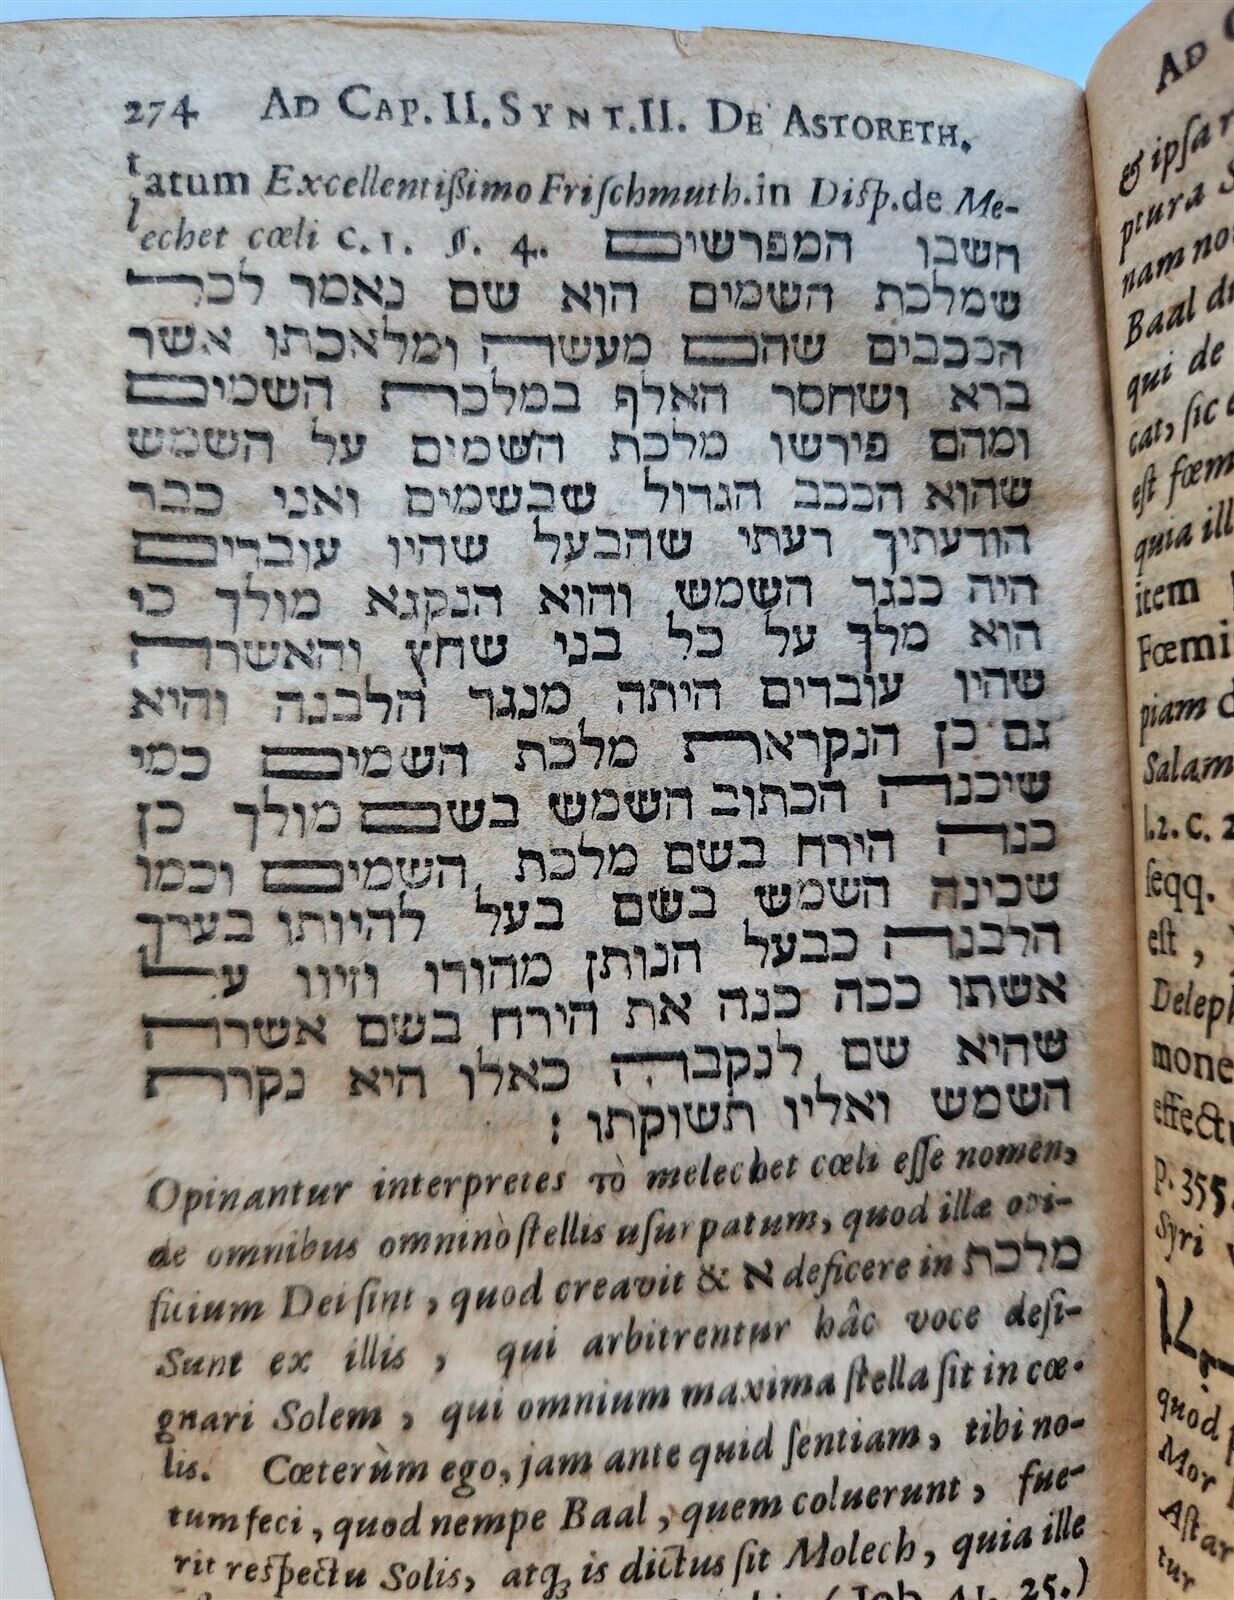 274 AD CAP. II. SYNT. II. DE ASTORETH.
tatum Excellentißimo Friſchmuth. in Diſp. de Me-
lechet cœli c. 1. §. 4. חשבו המפרשים
שמלכת השמים הוא שם נאמר לכל
הככבים שהם מעשה ומלאכתו אשר
ברא ושחסר האלף במלכת השמים
ומהם פירשו מלכת השמים על השמש
שהוא הככב הגדול שבשמים ואני כבר
הודעתיך דעתי שהבעל שהיו עובדים
היה כנגד השמש והוא הנקגא מולך כי
הוא מלך על כל בני שחץ והאשרה
שהיו עובדים היתה מנגד הלבנה והיא
גם כן הנקראת מלכת השמים כמי
שיכנה הכתוב השמש בשם מולך כן
כנה הירח בשם מלכת השמים וכמו
שכינה השמש בשם בעל להיותו בערך
הלבנה כבעל הנותן מהודו וזיוו על
אשתו ככה כנה את הירח בשם אשרה
שהיא שם לנקבה כאלו היא נקרת
השמש ואליו תשוקתו :
Opinantur interpretes τὸ melechet cœli eſſe nomen,
de omnibus omninò ſtellis uſurpatum, quod illæ opi-
ficium Dei ſint, quod creavit & א deficere in מלכת
Sunt ex illis, qui arbitrentur hâc voce deſi-
gnari Solem, qui omnium maxima ſtella ſit in cœ-
lis. Cœterùm ego, jam ante quid ſentiam, tibi no-
tum feci, quod nempe Baal, quem coluerunt, fue-
rit reſpectu Solis, atq; is dictus ſit Molech, quia ille
(Job. 41. 25.)
AD
& ipſa
ptura
nam
Baal
qui de
cat, ſic
eſt
quia
item
Fœmi
piam
Salam
l. 2. c.
ſeqq.
eſt,
Delep
mone
effectu
p. 355.
Syri
quod
Mor
Aſtar
tur